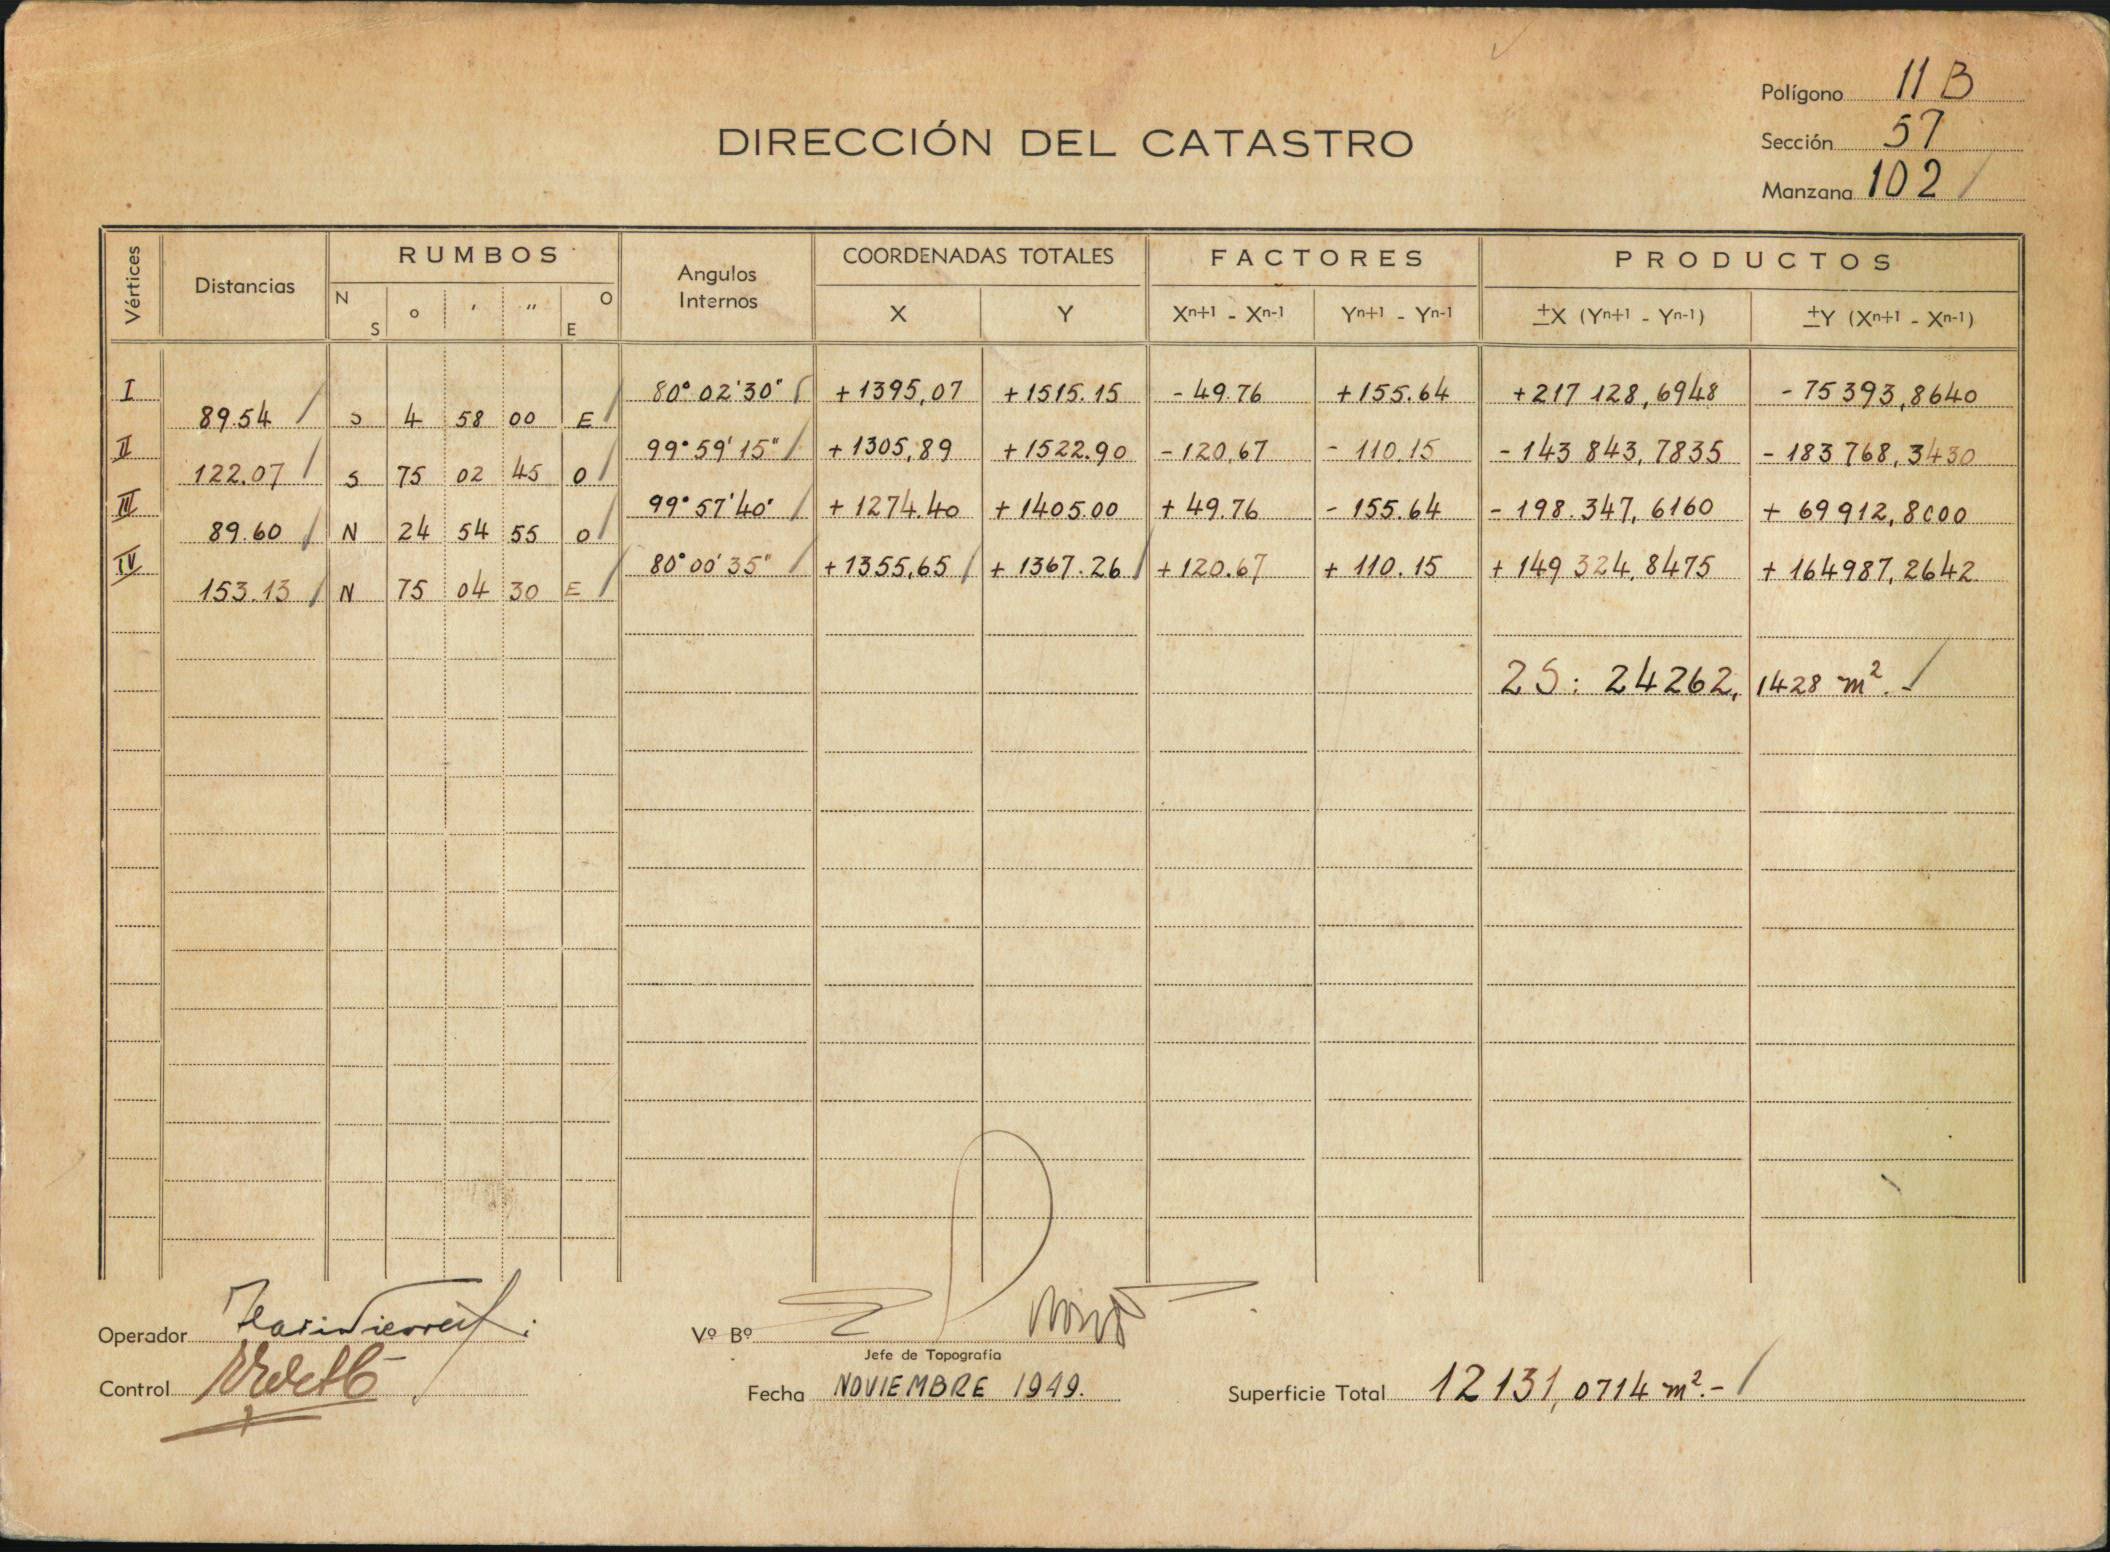 Polígono 11 B
DIRECCIÓN DEL CATASTRO
Sección 57
Manzana 102
Vértices Distancias RUMBOS Angulos Internos COORDENADAS TOTALES FACTORES PRODUCTOS
N S ° ′ ″ O E X Y Xn+1 - Xn-1 Yn+1 - Yn-1 ±X (Yn+1 - Yn-1) ±Y (Xn+1 - Xn-1)
I 80° 02' 30" +1395,07 +1515.15 - 49.76 +155.64 +217 128,6948 - 75 393,8640
89.54 S 4 58 00 E
II 99° 59' 15" +1305,89 +1522.90 - 120,67 - 110.15 - 143 843,7835 - 183 768,3430
122.07 S 75 02 45 O
III 99° 57' 40" + 1274.40 + 1405.00 + 49.76 - 155.64 - 198.347,6160 + 69 912,8000
89.60 N 24 54 55 O
IV 80° 00' 35" +1355,65 + 1367.26 +120.67 + 110.15 + 149 324,8475 + 164987,2642
153.13 N 75 04 30 E
2S: 24262,1428 m².-
Operador
Vº Bº
Jefe de Topografía
Control
Fecha NOVIEMBRE 1949.
Superficie Total 12 131,0714 m².-